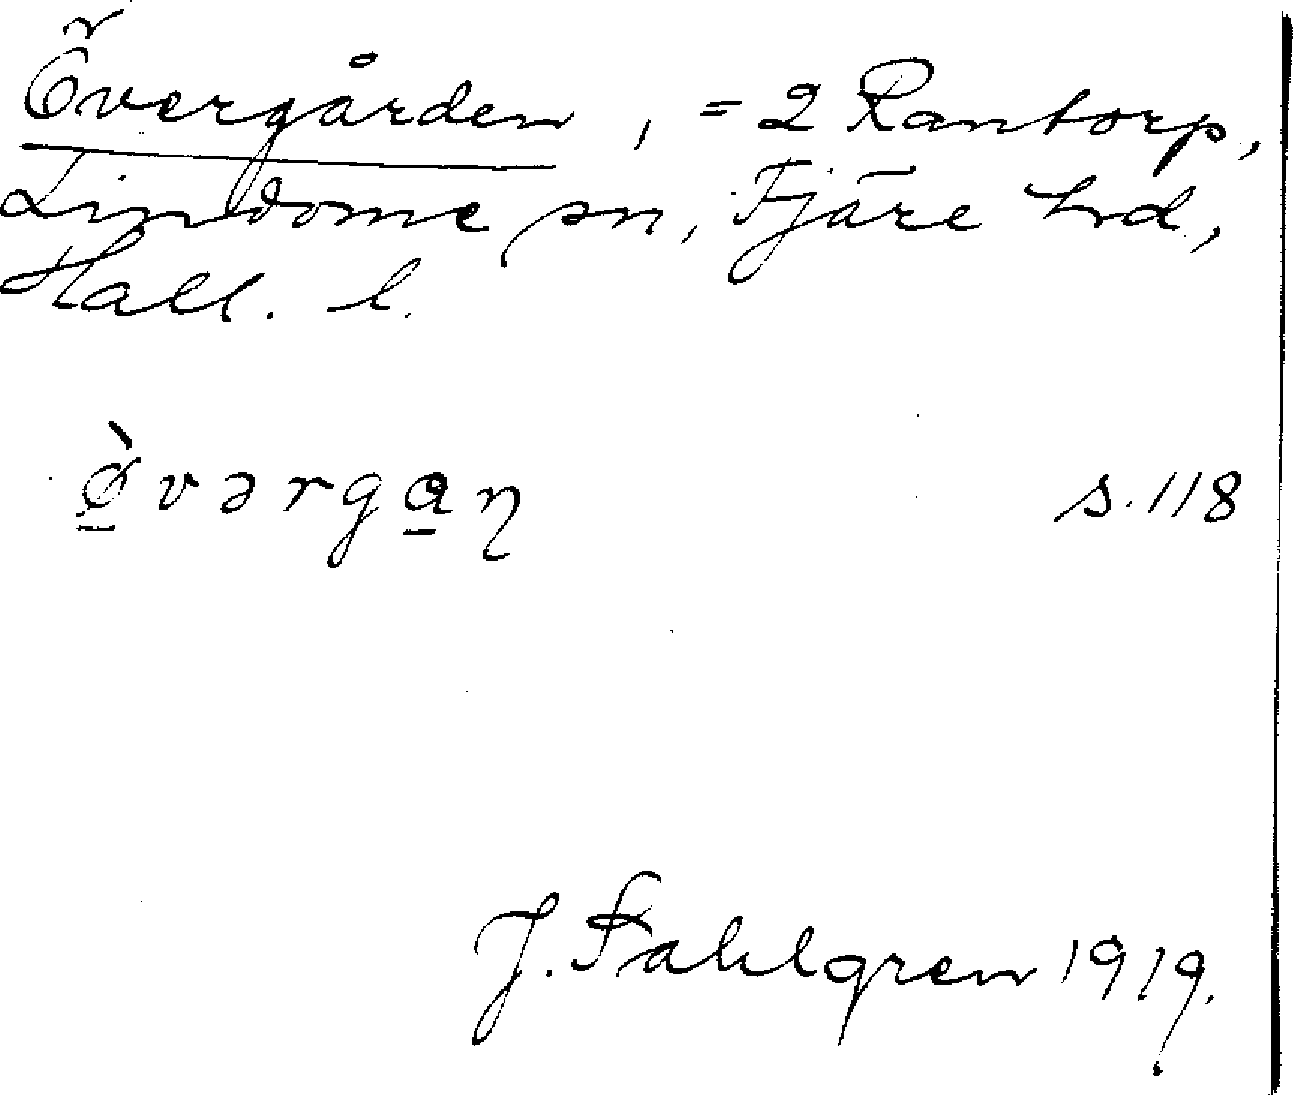 Övergården, = 2 Rantorp,
Lindome sn, Fjäre hd,
Hall. l.
ø̠̀vərga̠η s. 118
J. Fahlgren 1919.